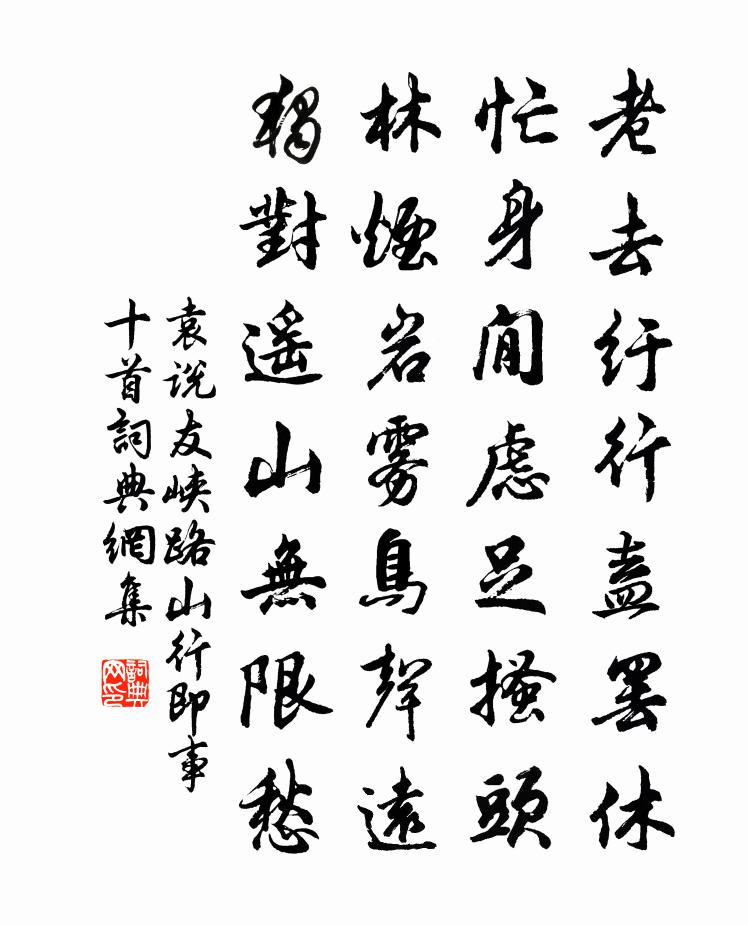 老去紆行盍罷休
忙身閒慮足搔頭
林煙岩雾鳥聲遠
獨對遥山無限愁
袁說友峽路山行即事
十首詞典網集
詞典
网印